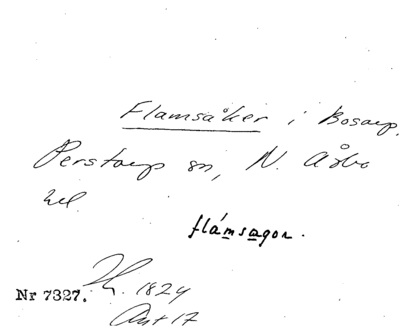 Flamsåker i Bosarp,
Perstorp sn, N. Åsbo
hd.
flámsagor.
Nr 7327. 1824
17